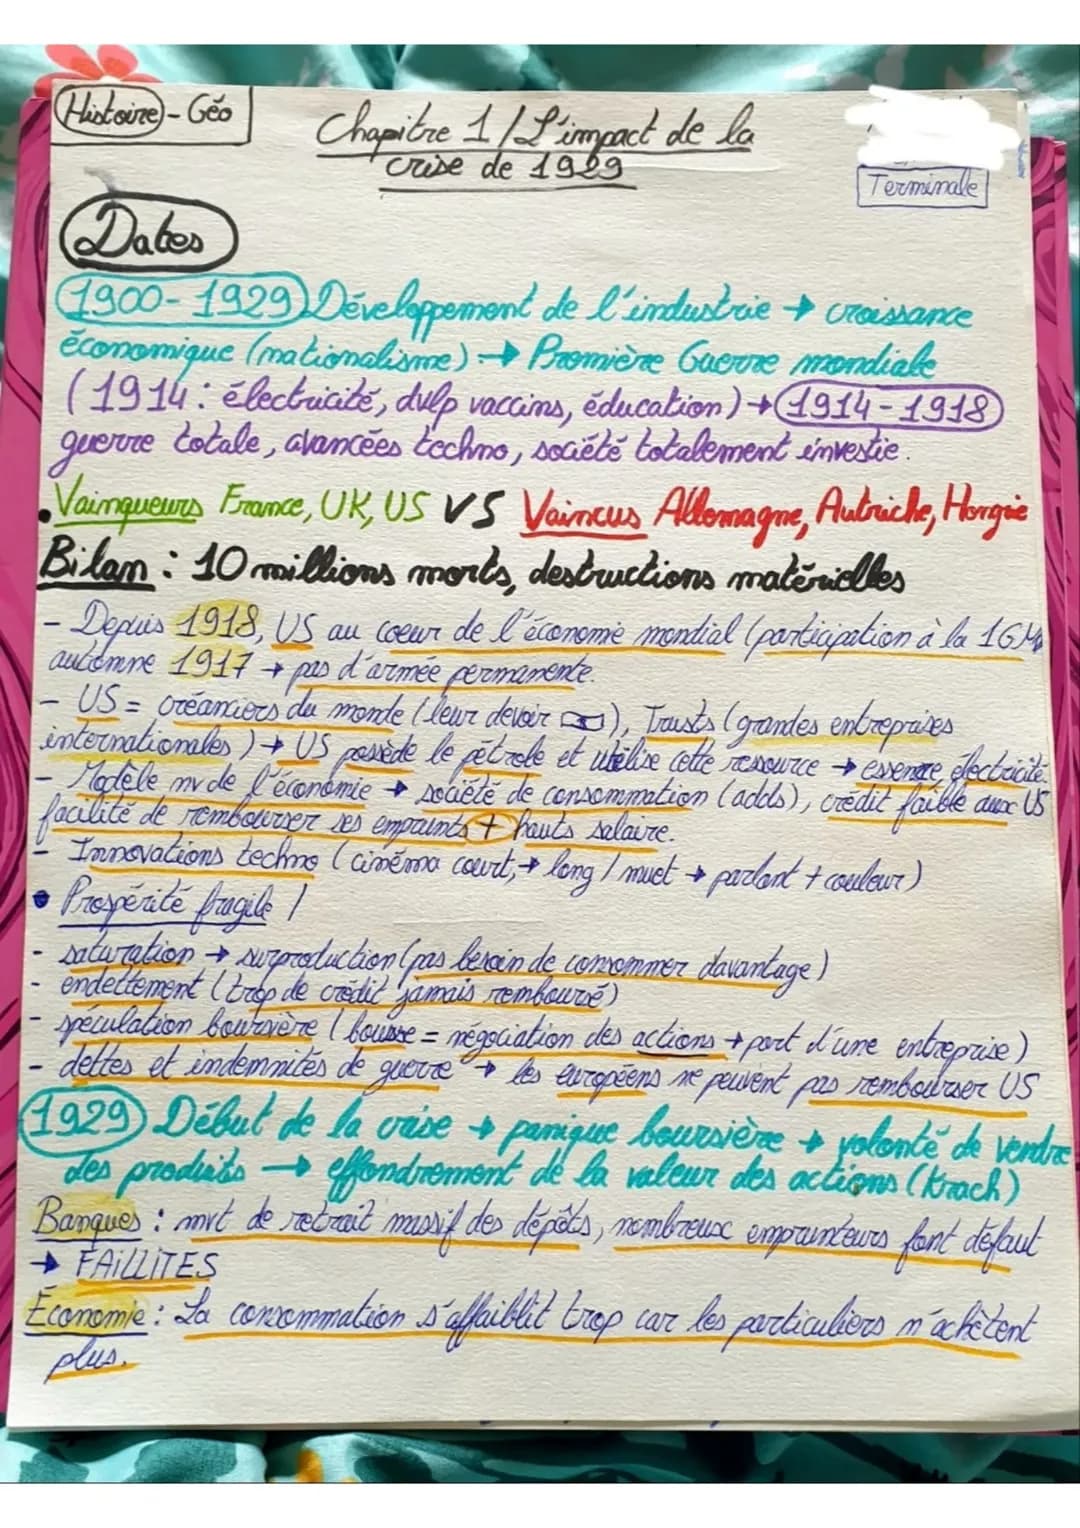 Histoire - Géo
Chapitre 1 / L'impact de la
crise de 1929
Terminale
Dates
1900 - 1929 Développement de l'industrie → croissance
économique (nationalisme) → Première Guerre mondiale
(1914 : électricité, dvlp vaccins, éducation) → 1914 - 1918
guerre totale, avancées techno, société totalement investie.
• Vainqueurs France, UK, US VS Vaincus Allemagne, Autriche, Hongrie
Bilan : 10 millions morts, destructions matérielles
- Depuis 1918, US au coeur de l'économie mondial (participation à la 1GM
automne 1917 → pas d'armée permanente.
- US = créanciers du monde (leur devoir), Trusts (grandes entreprises
internationales) → US possède le pétrole et utilise cette ressource → essence, électricité.
- Modèle mv de l'économie → société de consommation (adds), crédit faible aux US
facilité de rembourser ses emprunts + hauts salaire.
- Innovations techno (cinéma court, → long / muet → parlant + couleur)
• Prospérité fragile /
- saturation → surproduction (pas besoin de consommer davantage)
- endettement (trop de crédit jamais remboursé)
- spéculation boursière (bourse = négociation des actions → part d'une entreprise)
- dettes et indemnités de guerre → les européens ne peuvent pas rembourser US
1929 Début de la crise → panique boursière → volonté de vendre
des produits → effondrement de la valeur des actions (Krach)
Banques : mvt de retrait massif des dépôts, nombreux emprunteurs font défaut
→ FAILLITES
Économie : La consommation s'affaiblit trop car les particuliers n'achètent
plus.